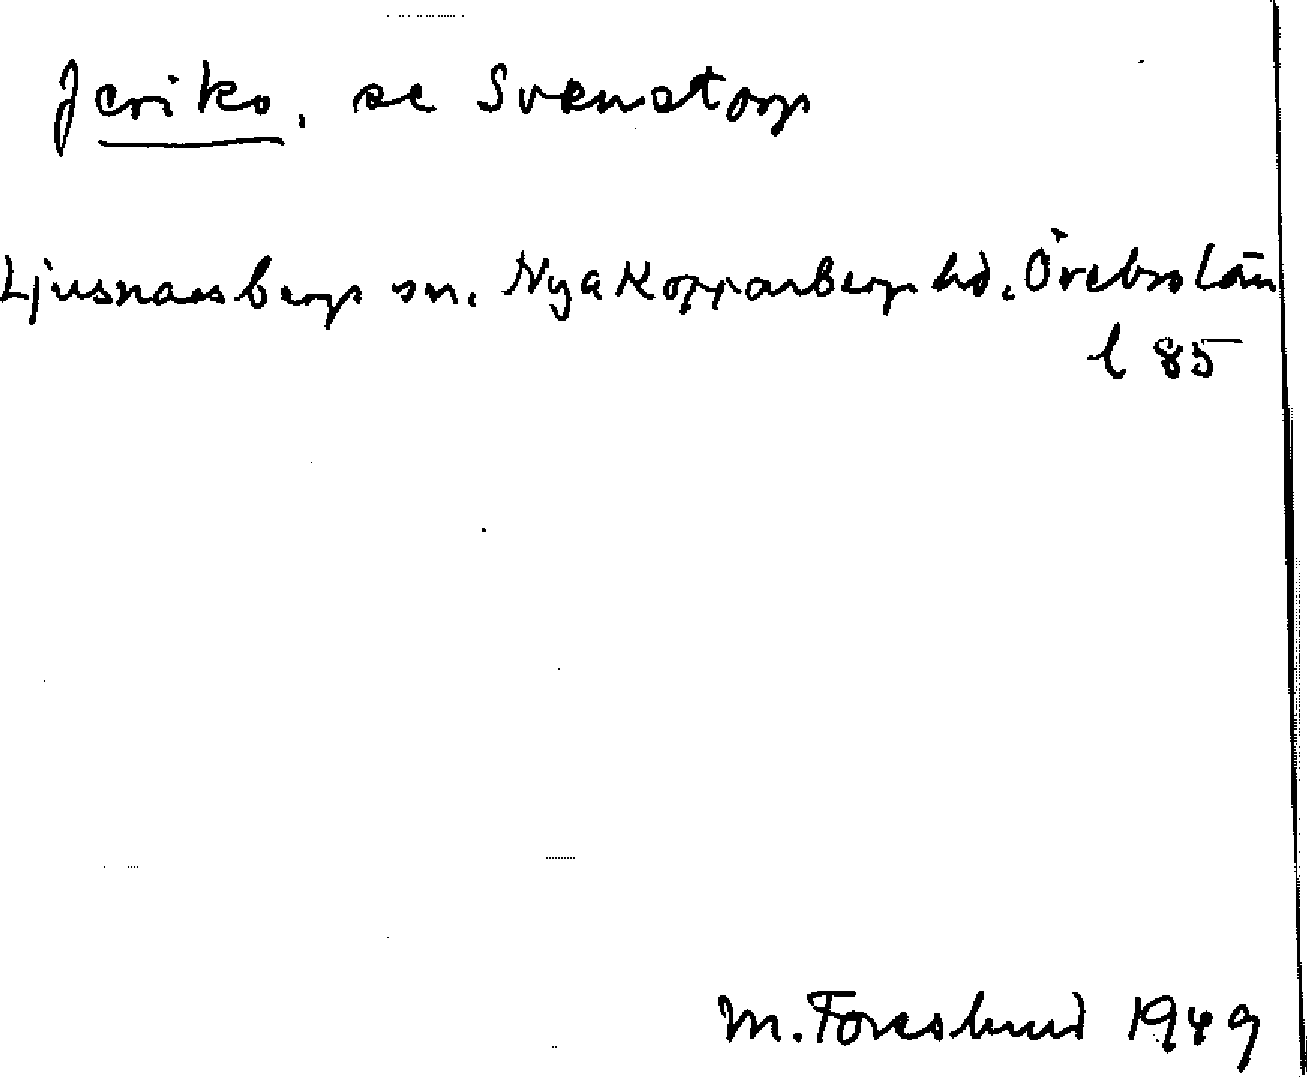 Jeriko, se Svenstorp
Ljusnarsbergs sn. Nya Kopparbergs hd. Örebro län
l 85
M. Forsslund 1949